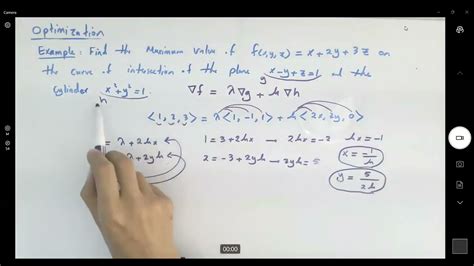 Camera
Optimization
Example: Find the Maximum value of f(x,y,z) = x + 2y + 3z on
the curve of intersection of the plane x - y + z = 1 and the
g
cylinder x² + y² = 1.
h
∇f = λ∇g + h∇h
⟨1, 2, 3⟩ = λ⟨1, -1, 1⟩ + h⟨2x, 2y, 0⟩
= λ + 2hx
λ + 2yh
1 = 3 + 2hx → 2hx = -2 hx = -1
2 = -3 + 2yh → 2yh = 5
x = -1/h
y = 5/2h
00:00